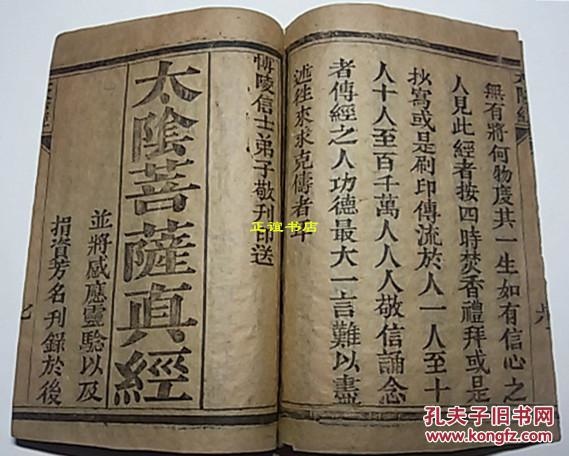 太陰經
無有將何物度其一生如有信心之
人見此經者按四時焚香禮拜或是
抄寫或是刷印傳流於人一人至十
人十人至百千萬人人人敬信誦念
者傳經之人功德最大一言難以盡
述徃來求克儔者
博陵信士弟子敬刊印送
太陰菩薩真經
並將感應靈驗以及
捐資芳名刊錄於後
七
正谊书店
孔夫子旧书网
www.kongfz.com